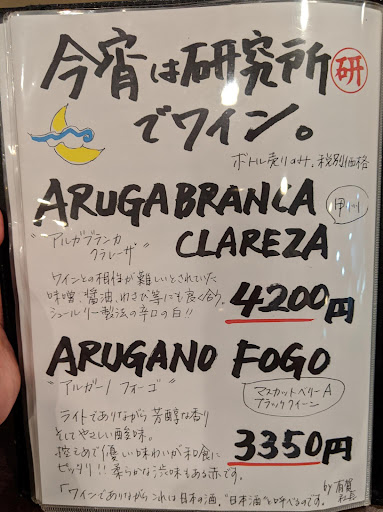 今宵は研究所 研
でワイン。
ボトル売りのみ、税別価格
ARUGABRANCA 甲州
"アルガブランカ
クラレーザ"
CLAREZA
ワインとの相性が難しいとされていた
味噌、醤油、わさび等にも良く合う。
シュールリー製法の辛口の白!!
4200円
ARUGANO FOGO
"アルガーノ フォーゴ"
マスカットベリーA
ブラッククイーン
ライトでありながら芳醇な香り
そしてやさしい酸味。
控えめで優しい味わいが和食に
ピッタリ!!柔らかな渋味もある赤です。
3350円
by 有賀
社長
「ワインでありながらこれは日本の酒、"日本酒"と呼べるのです。